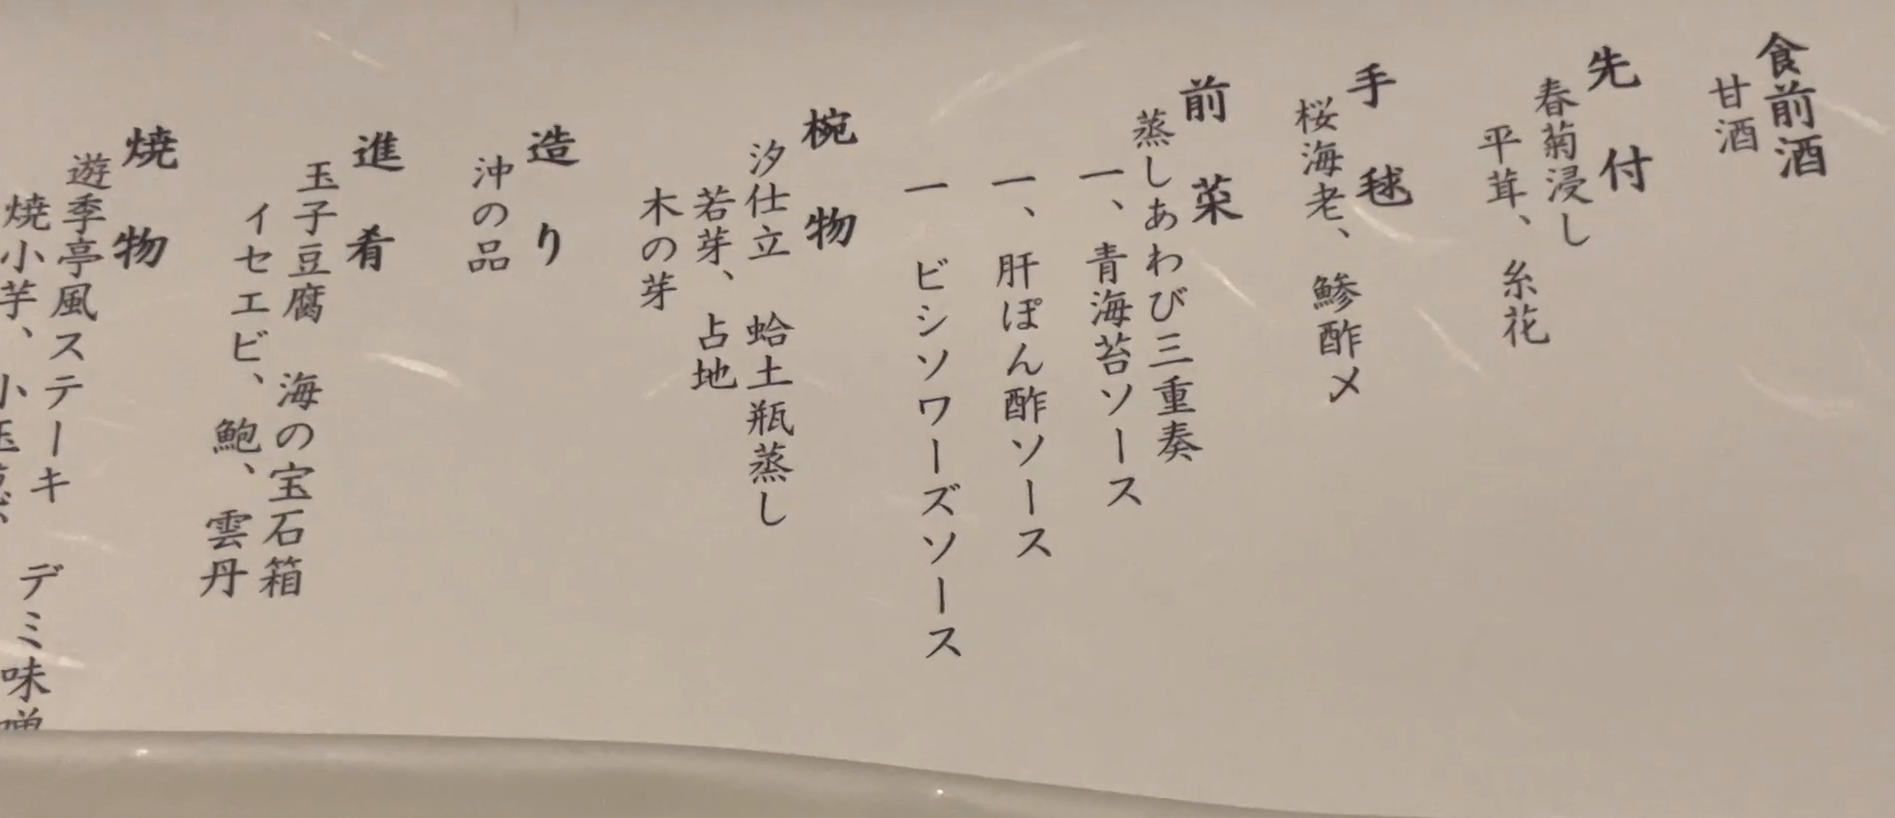 食前酒
甘酒
先付
春菊浸し
平茸、糸花
手毬
桜海老、鯵酢〆
前菜
蒸しあわび三重奏
一、青海苔ソース
一、肝ぽん酢ソース
一 ビシソワーズソース
椀物
汐仕立 蛤土瓶蒸し
若芽、占地
木の芽
造り
沖の品
進肴
玉子豆腐 海の宝石箱
イセエビ、鮑、雲丹
焼物
遊季亭風ステーキ デミ味噌
焼小芋、小玉葱